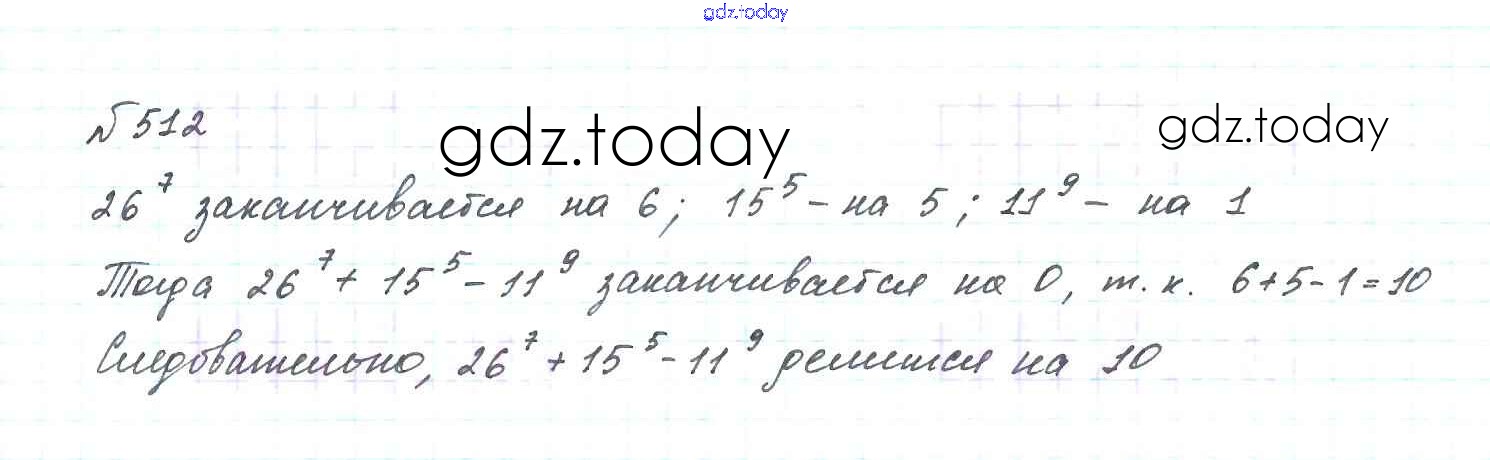 gdz.today
№512
gdz.today
gdz.today
26⁷ заканчивается на 6; 15⁵ – на 5; 11⁹ – на 1
Тогда 26⁷ + 15⁵ – 11⁹ заканчивается на 0, т. к. 6+5-1=10
Следовательно, 26⁷ + 15⁵ - 11⁹ делится на 10